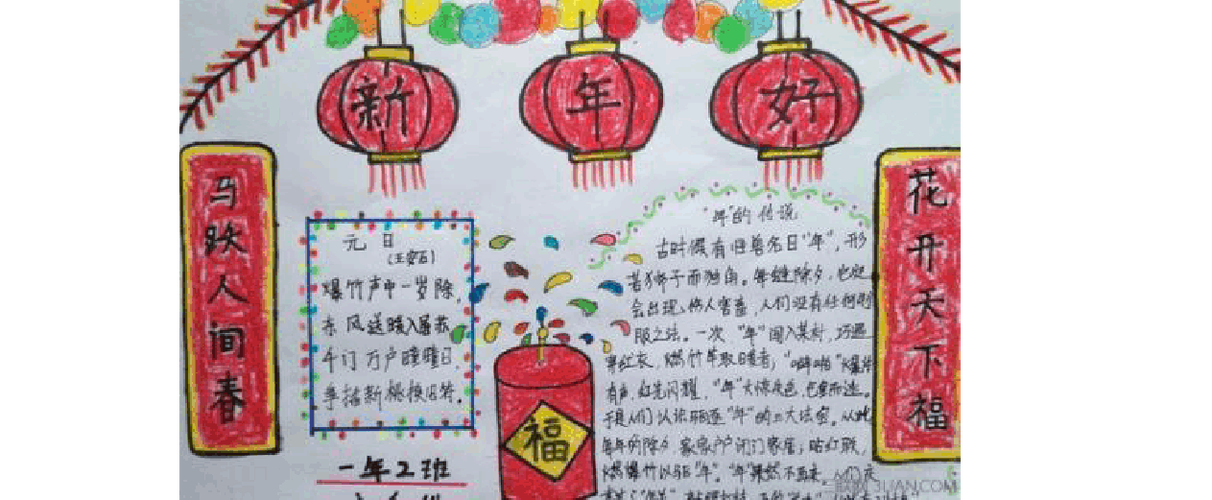 新年好
马跃人间春
花开天下福
元日
(王安石)
爆竹声中一岁除,
东风送暖入屠苏
千门万户瞳瞳日,
争插新桃换旧符。
福
一年2班
"年"的传说
古时候有旧兽名曰"年",形
若狮子而独角。每继除夕,它
会出现,伤人害畜,人们没有任何
服之法。一次"年"闯入某村,巧遇
穿红衣,燃竹竿取暖者;"噼啪"爆
有声,红光闪耀,"年"大惊失色,
于是人们认识"年"的三大法宝。从此
每年的除夕,家家户户闭门家居;贴红联,
燃爆竹以驱"年","年"果然不再来。人们
3LIAN.COM